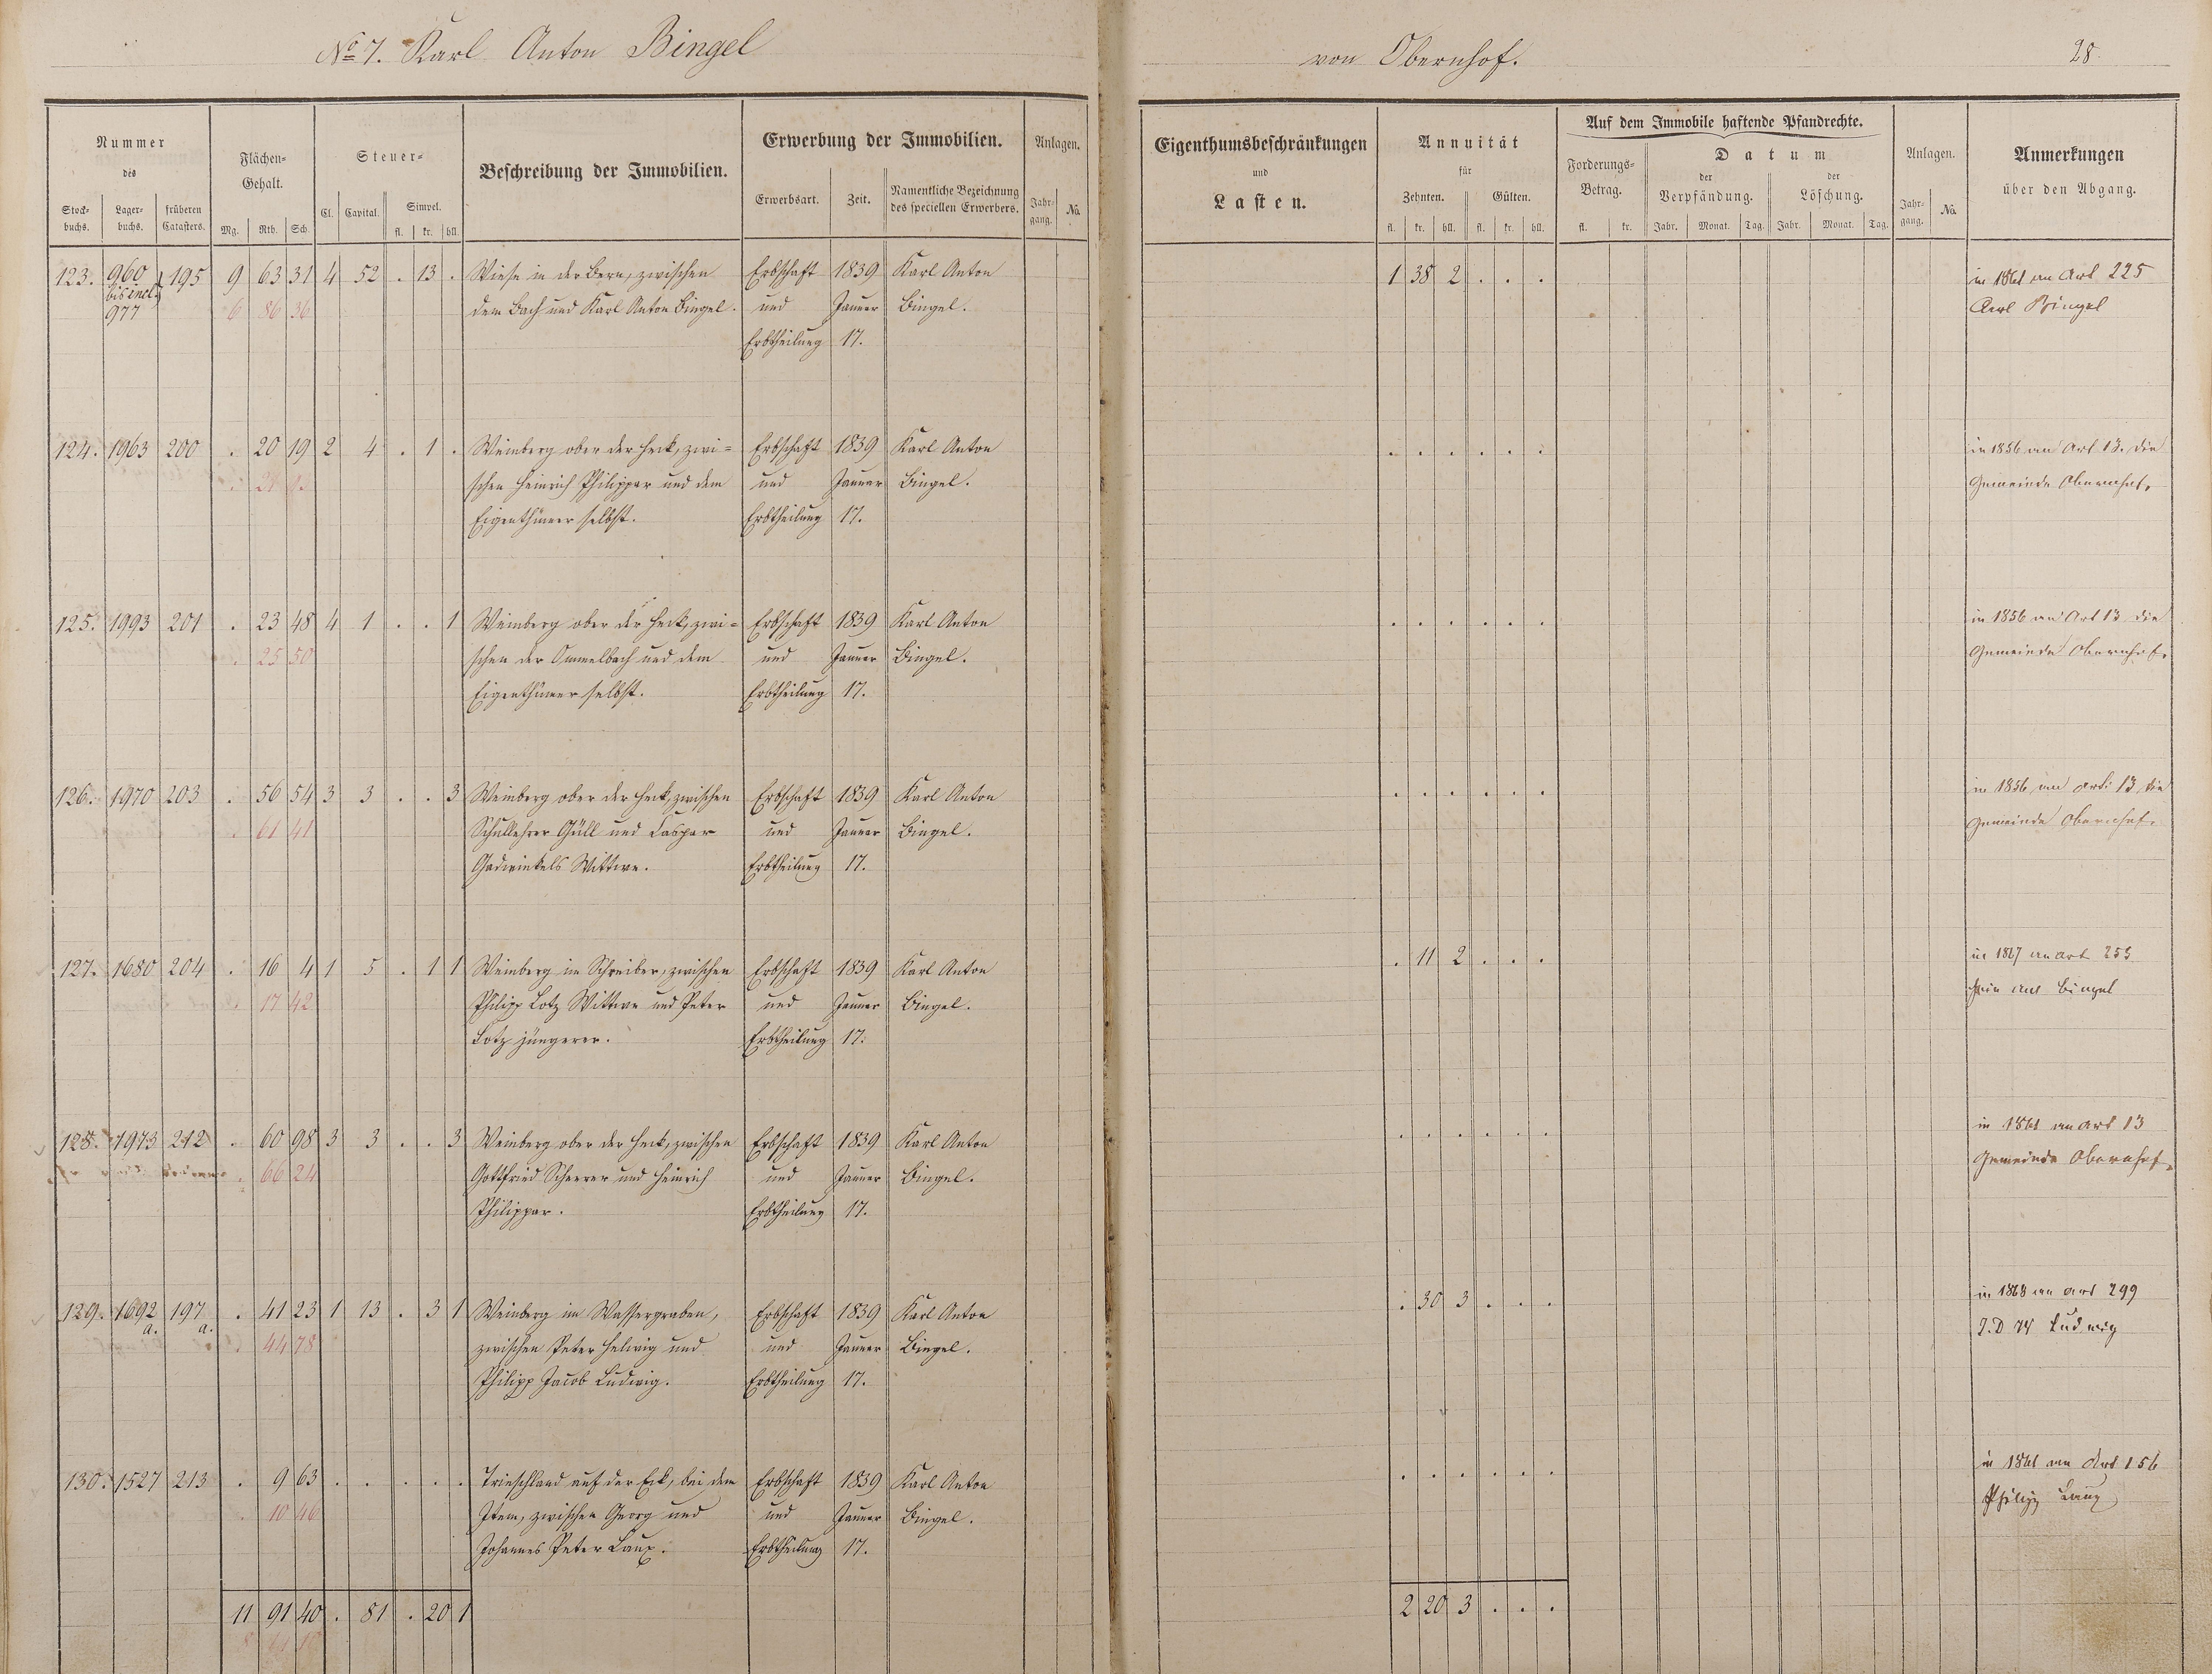 No 7. Karl Anton Bingel von Obernhof. 28
Nummer
des
Stock-
buchs.
Lager-
buchs.
früheren
Catasters.
Flächen-
Gehalt.
Mg. Rth. Sch.
Steuer-
Cl. Capital. Simpel.
fl. kr. hll.
Beschreibung der Immobilien.
Erwerbung der Immobilien.
Erwerbsart. Zeit. Namentliche Bezeichnung
des speciellen Erwerbers.
Anlagen.
Jahr-
gang. No.
Eigenthumsbeschränkungen
und
Lasten.
Annuität
für
Zehnten. Gülten.
fl. kr. hll. fl. kr. hll.
Auf dem Immobile haftende Pfandrechte.
Forderungs-
Betrag.
fl. kr.
Datum
der
Verpfändung.
der
Löschung.
Jahr. Monat. Tag. Jahr. Monat. Tag.
Anlagen.
Jahr-
gang. No.
Anmerkungen
über den Abgang.
123. 960 195 9 63 31 4 52 . 13 . Wiese in der Bern, zwischen Erbschaft 1839 Karl Anton 1 38 2 . . . in 1861 an Art 225
bis incl.
977 6 86 36 dem Bach und Karl Anton Bingel. und Januar Bingel. Karl Bingel
Erbtheilung 17.
124. 1963 200 . 20 19 2 4 . 1 . Weinberg ober der Heck, zwi= Erbschaft 1839 Karl Anton . . . . . . in 1856 an Art 13. die
schen Heinrich Philippar und dem und Januar Bingel. Gemeinde Obernhof.
Eigenthümer selbst. Erbtheilung 17.
125. 1993 201 . 23 48 4 1 . . 1 Weinberg ober der Heck, zwi= Erbschaft 1839 Karl Anton . . . . . . in 1856 an Art 13 die
. 25 50 schen der Ommelbach und dem und Januar Bingel. Gemeinde Obernhof.
Eigenthümer selbst. Erbtheilung 17.
126. 1970 203 . 56 54 3 3 . . 3 Weinberg ober der Heck, zwischen Erbschaft 1839 Karl Anton . . . . . . in 1856 an Art: 13 die
. 61 41 Schullehrer Güll und Caspar und Januar Bingel. Gemeinde Obernhof.
Gadwinkels Wittwe. Erbtheilung 17.
127. 1680 204 . 16 4 1 5 . 1 1 Weinberg im Schreiber, zwischen Erbschaft 1839 Karl Anton . 11 2 . . . in 1867 an Art 253
. 17 42 Philipp Lotz Wittwe und Peter und Januar Bingel. Bingel
Lotz jüngerer. Erbtheilung 17.
128. 1973 212 . 60 98 3 3 . . 3 Weinberg ober der Heck, zwischen Erbschaft 1839 Karl Anton . . . . . . in 1861 an Art 13
. 66 24 Gottfried Scherer und Heinrich und Januar Bingel. Gemeinde Obernhof.
Philippar. Erbtheilung 17.
129. 1692 197 . 41 23 1 13 . 3 1 Weinberg im Wassergraben, Erbschaft 1839 Karl Anton . 30 3 . . . in 1868 an Art 299
a. a. 44 78 zwischen Peter Helwig und und Januar Bingel. Ludwig
Philipp Jacob Ludwig. Erbtheilung 17.
130. 1527 213 . 9 63 . . . . . Trieschland auf der Eck, bei dem Erbschaft 1839 Karl Anton . . . . . . in 1861 an Art 156
. 10 46 Item, zwischen Georg und und Januar Bingel. Philipp Laux
Johannes Peter Laux. Erbtheilung 17.
11 91 40 . 81 . 20 1 2 20 3 . . .